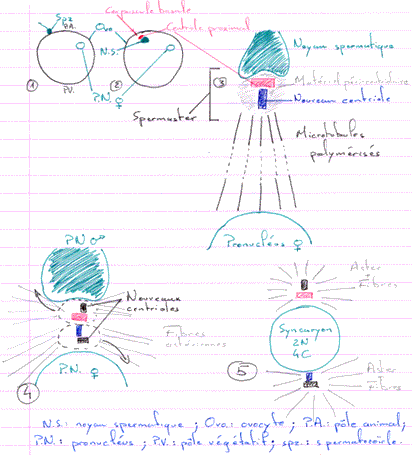 Corpuscule basale
Centriole proximal
Spz
P.A.
Ovo
N.S.
P.V.
P.N. ♀
1
2
3
Noyau spermatique
Matériel péricentriolaire
Nouveau centriole
Spermaster
Microtubules
polymérisés
Pronucléus ♀
PN ♂
Nouveaux
centrioles
Fibres
astériennes
P.N. ♀
4
Aster
Fibres
Syncaryon
2N
4C
5
Aster
Fibres
N.S.: noyau spermatique ; Ovo: ovocyte ; P.A.: pôle animal;
P.N.: pronucléus ; P.V.: pôle végétatif ; spz.: spermatozoïde.